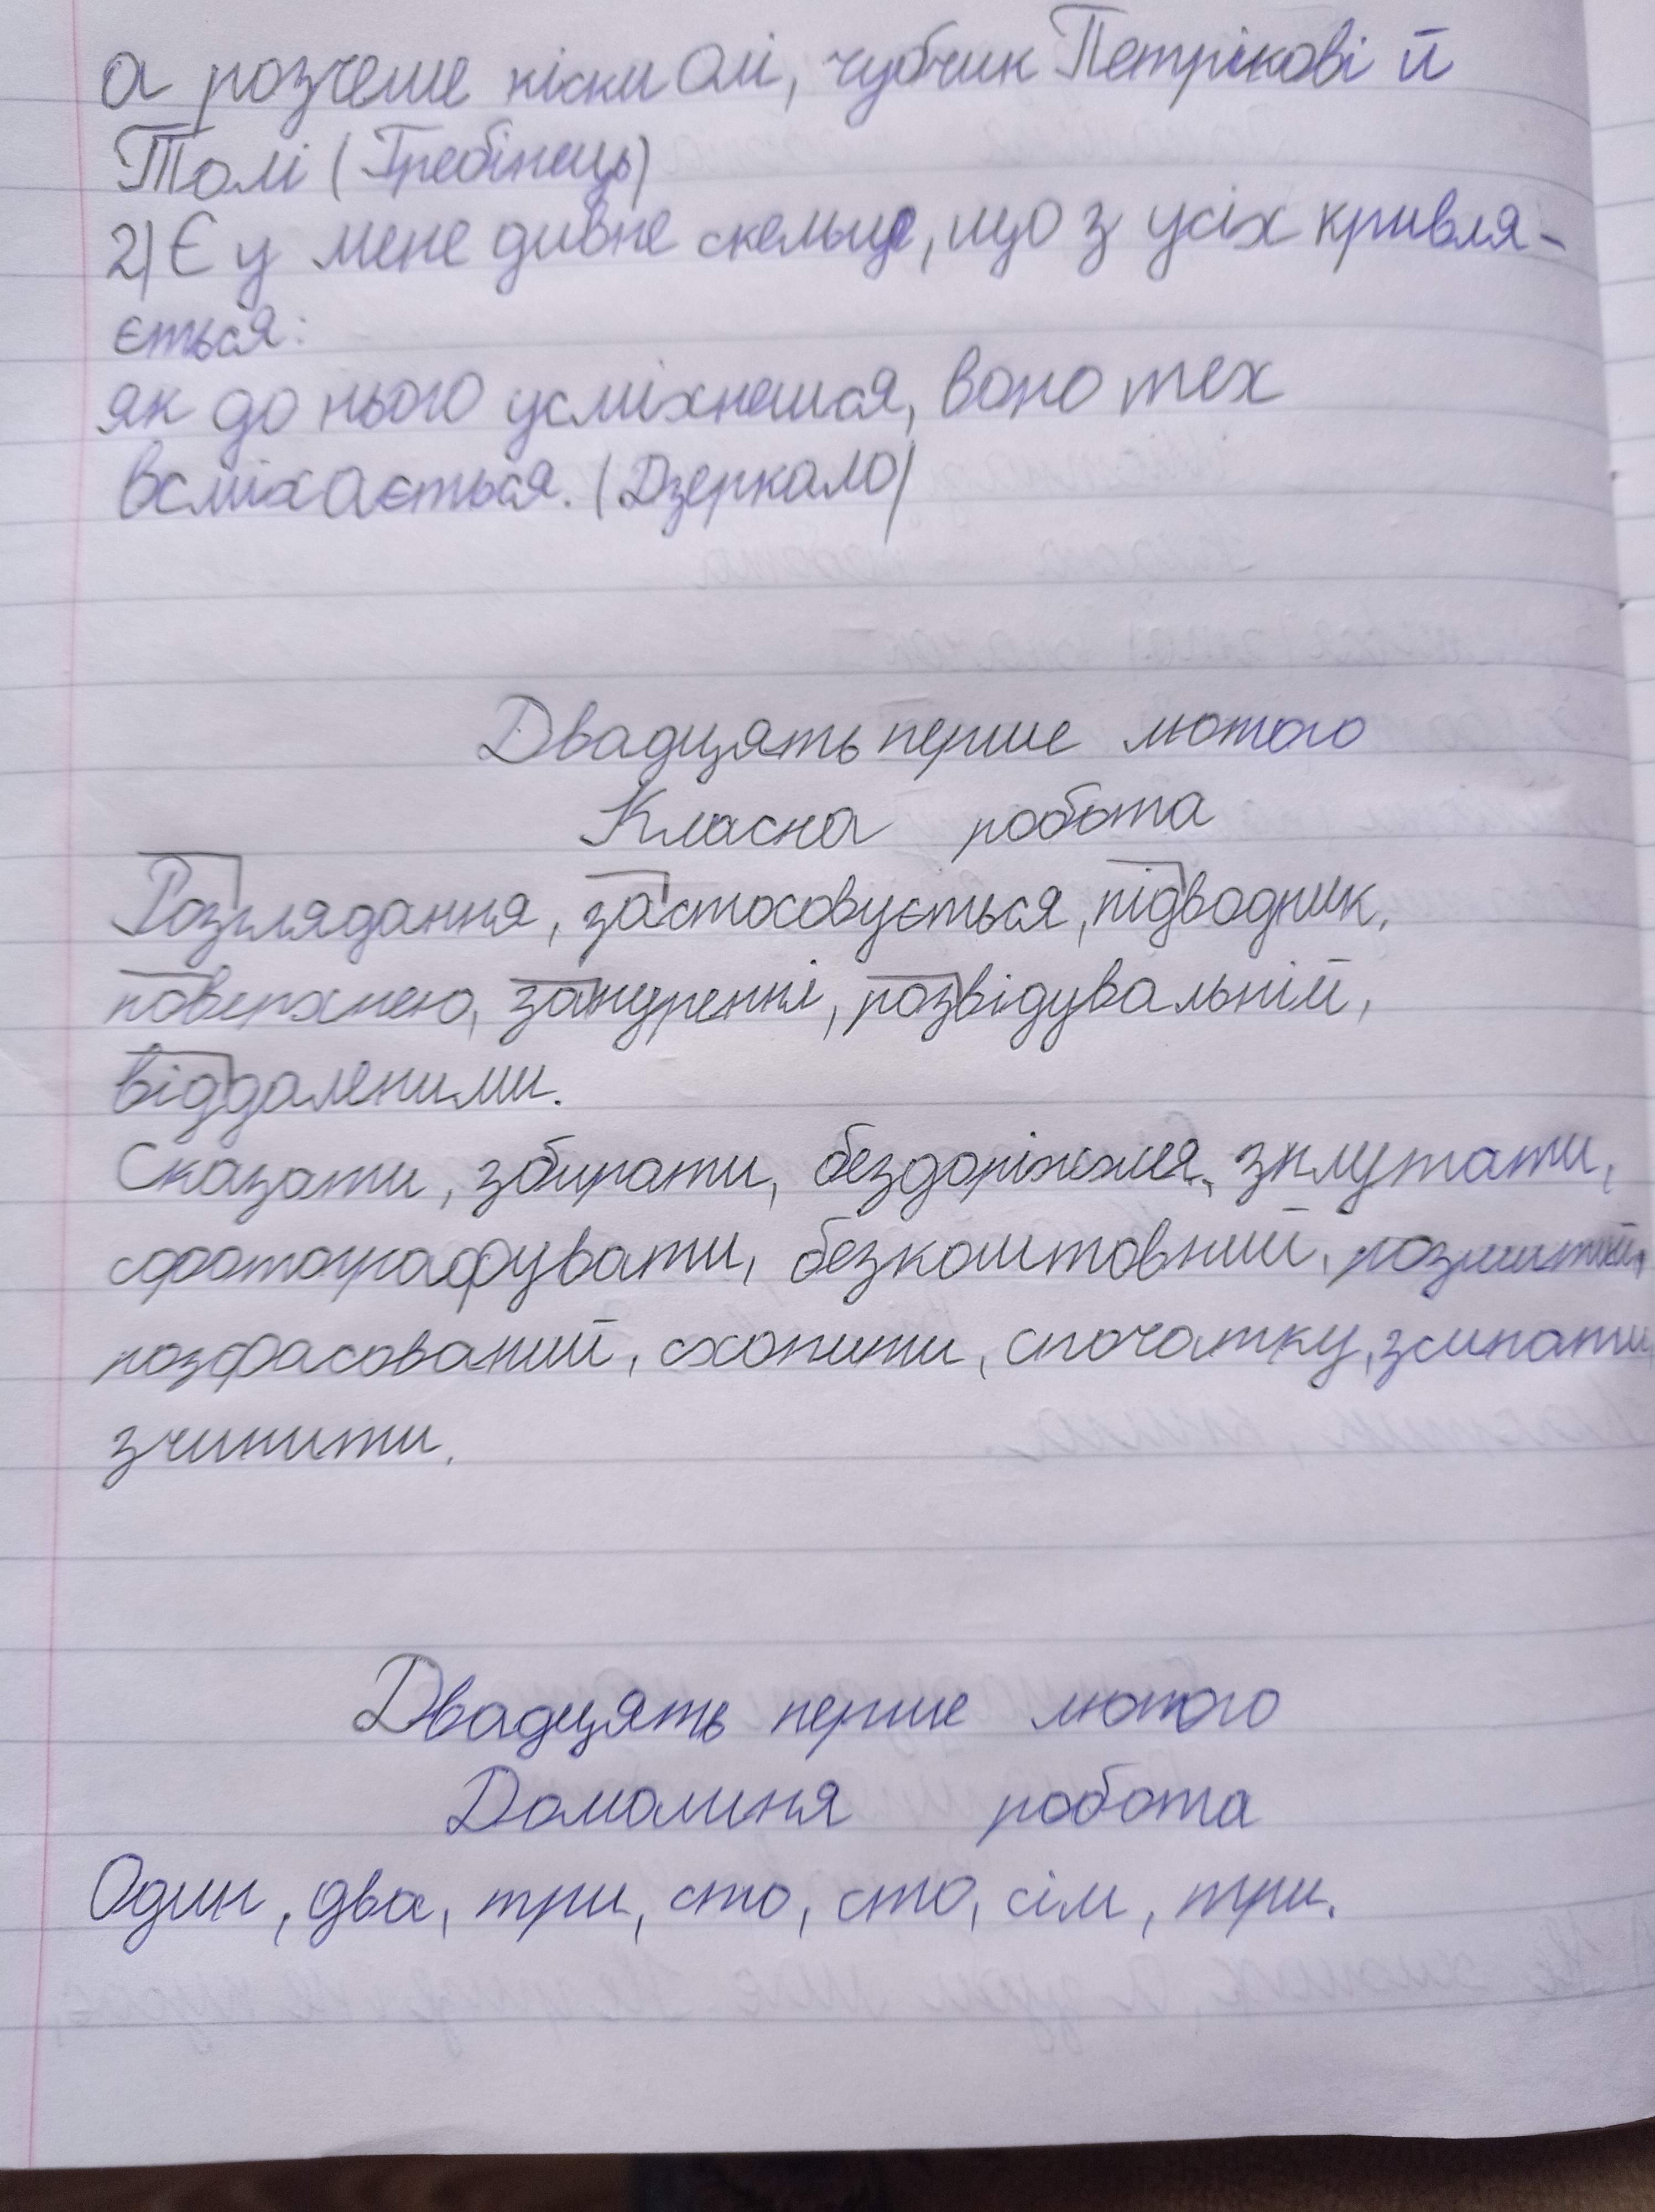 а розчеше кіски Олі, чубчик Петрікові й
Толі (Гребінець)
2) Є у мене дивне скельце, що з усіх кривля-
ється:
як до нього усміхнешся, воно тех
всміхається. (Дзеркало)
Двадцять перше лютого
Класна робота
Розглядання, застосовується, підводник,
поверхнею, зануренні, розвідувальній,
віддаленими.
Сказати, збирати, бездоріжжя, зплутати,
сфотографувати, безкоштовний,
розфасований, схопити, спочатку, зсипати
зчинити.
Двадцять перше лютого
Домашня робота
Один, два, три, сто, сто, сім, три.